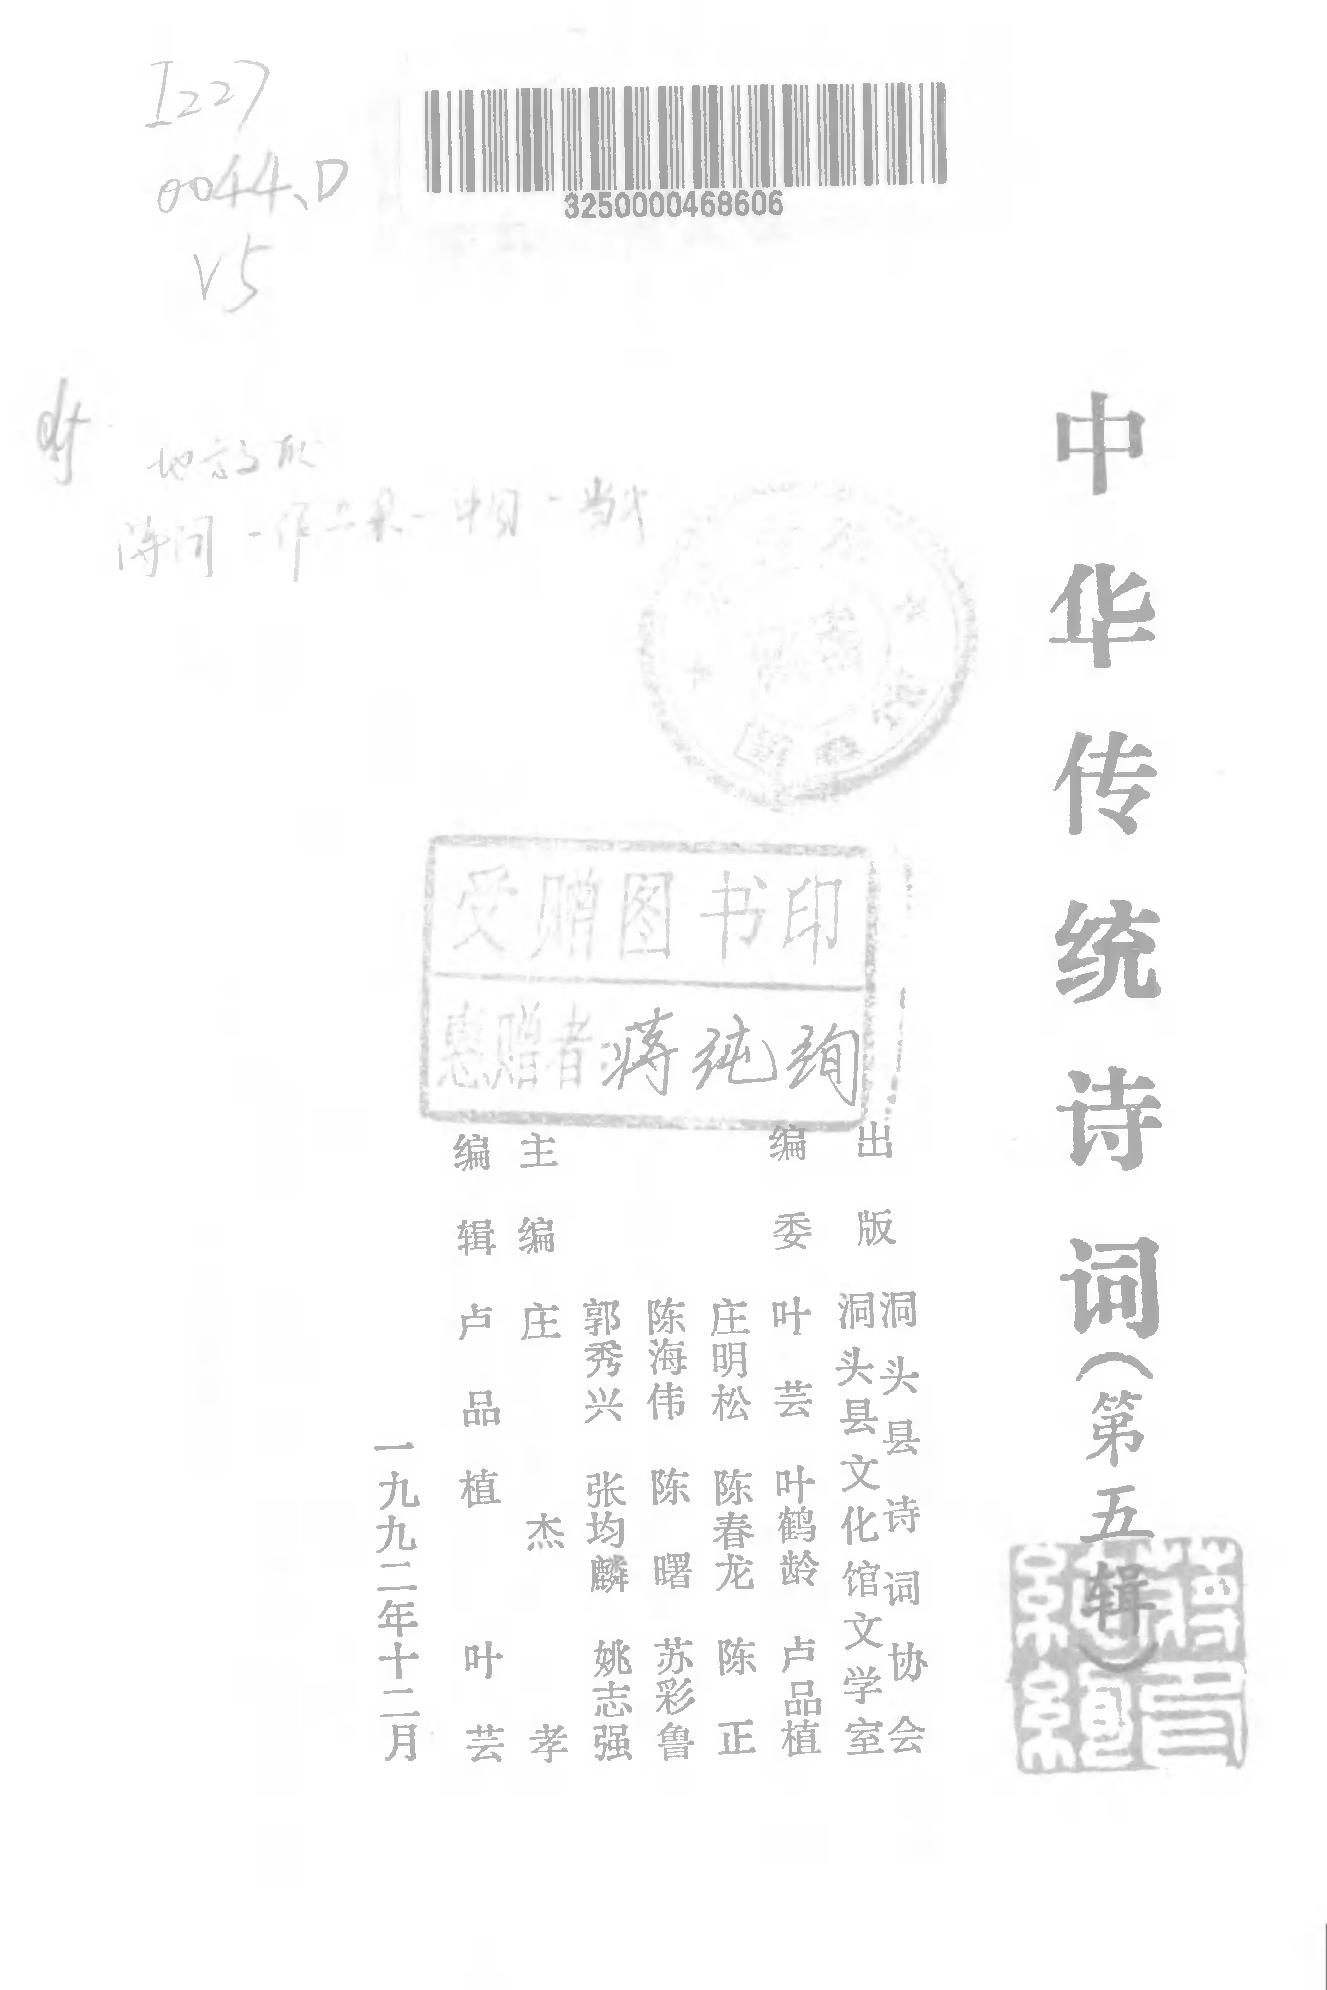 I227
0044、D
V5
3250000468606
地方文献
诗词-作品集-中国-当代
中华传统诗词（第五辑）
受赠图书印
惠赠者：蒋纯绚
出版 洞头县诗词协会
洞头县文化馆文学室
编委 叶芸 叶鹤龄 卢品植
庄明松 陈春龙 陈正
陈海伟 陈曙 苏彩鲁
郭秀兴 张均麟 姚志强
主编 庄杰孝
编辑 卢品植 叶芸
一九九二年十二月